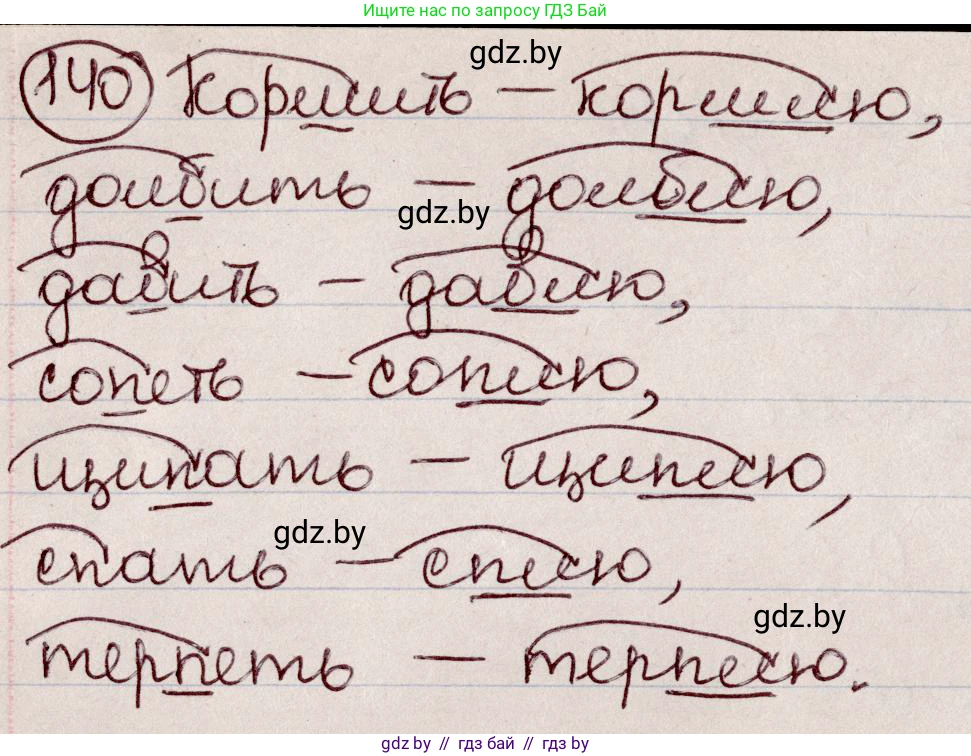 Ищите нас по запросу ГДЗ Бай
gdz.by
140 Кормить – кормлю,
долбить – долблю,
gdz.by
давить – давлю,
сопеть – соплю,
щипать – щиплю,
gdz.by
спать – сплю,
gdz.by
терпеть – терплю.
gdz.by // гдз бай // гдз by